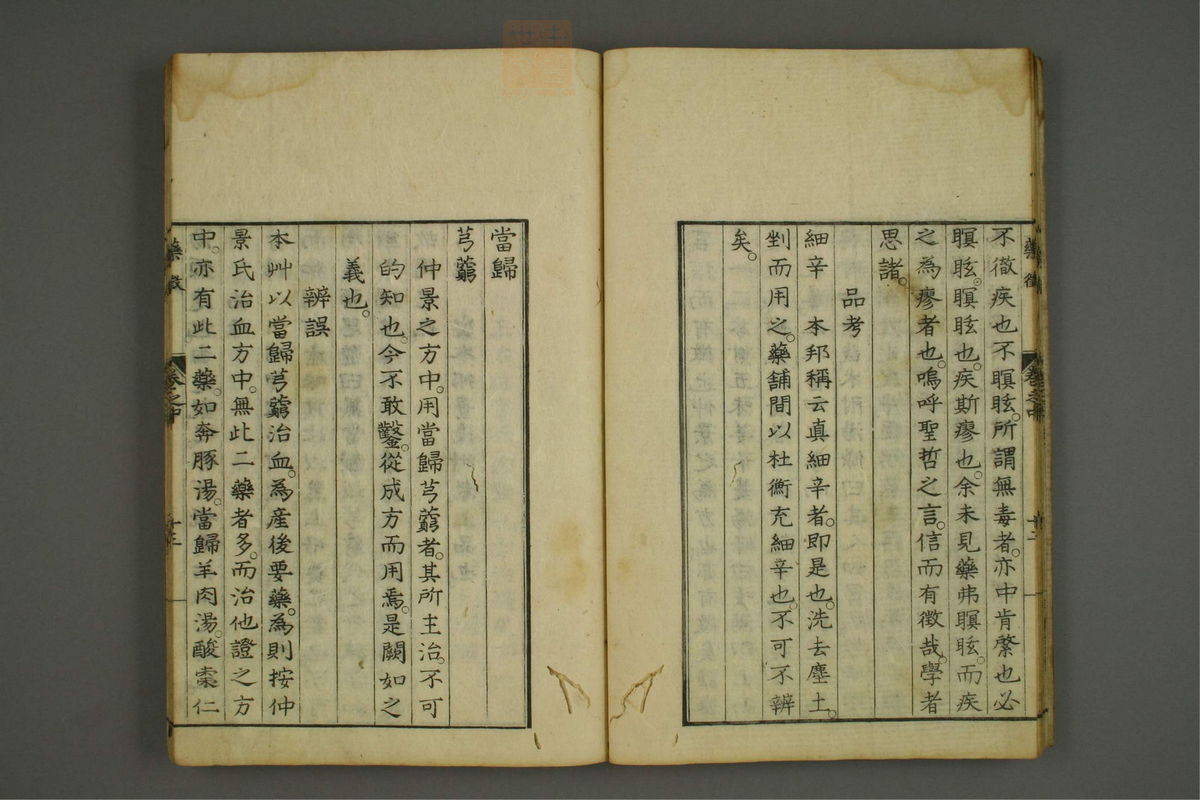 不徵疾也不瞑眩所謂無毒者。亦中肯綮也必
瞑眩。瞑眩也。疾斯瘳也。余未見藥弗瞑眩。而疾
之為瘳者也。嗚呼聖哲之言。信而有徵哉。學者
思諸。
品考
細辛　本邦稱云真細辛者。即是也。洗去塵土。
剉而用之。藥舖間以杜衡充細辛也。不可不辨
矣。
藥徵
卷之中
當歸
芎藭
仲景之方中。用當歸芎藭者。其所主治。不可
的知也。今不敢鑿。從成方而用焉。是闕如之
義也。
辨誤
本艸以當歸芎藭治血。為産後要藥。為則按仲
景氏治血方中。無此二藥者多。而治他證之方
中。亦有此二藥。如奔豚湯。當歸羊肉湯。酸棗仁
藥徵
卷之中